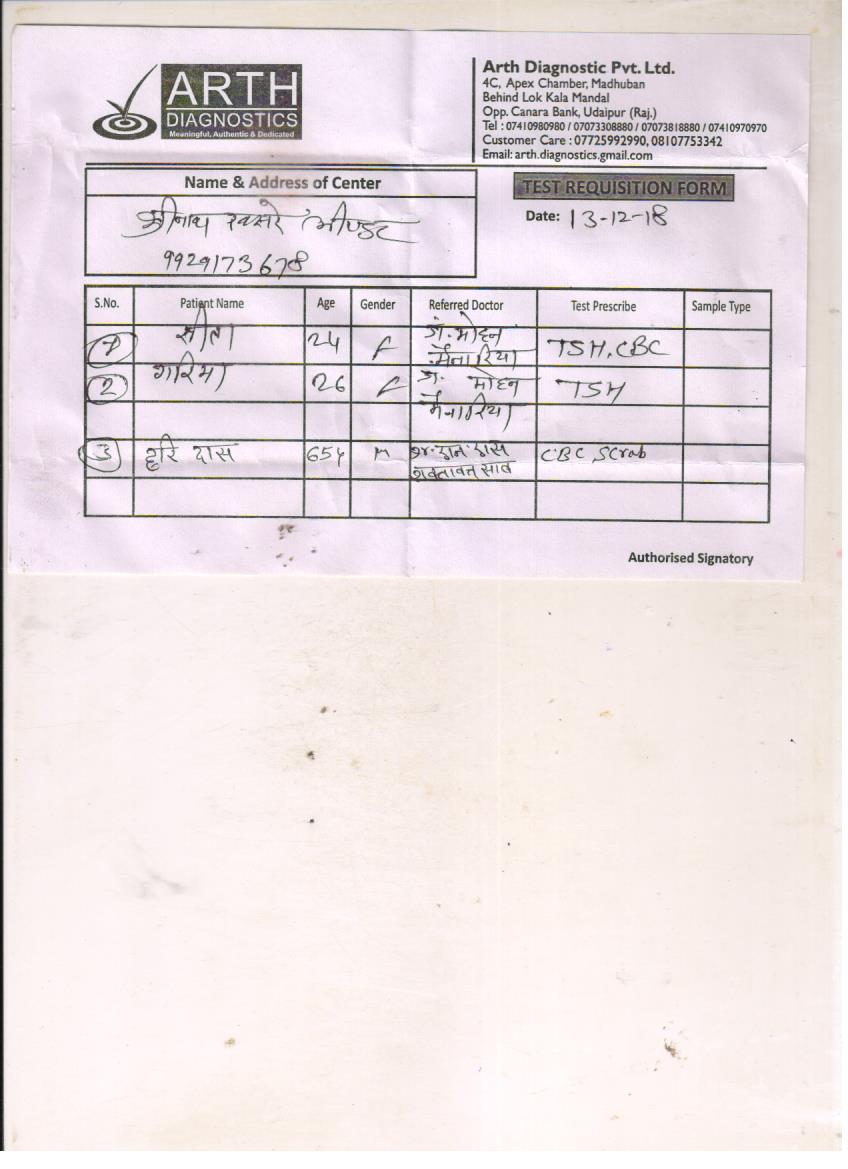 ARTH
DIAGNOSTICS
Meaningful, Authentic & Dedicated
Arth Diagnostic Pvt. Ltd.
4C, Apex Chamber, Madhuban
Behind Lok Kala Mandal
Opp. Canara Bank, Udaipur (Raj.)
Tel : 07410980980 / 07073308880 / 07073818880 / 07410970970
Customer Care : 07725992990, 08107753342
Email: arth.diagnostics.gmail.com
Name & Address of Center
TEST REQUISITION FORM
Date: 13-12-18
श्रीनाथ एक्सरे भीण्डर
9929173678
S.No. Patient Name Age Gender Referred Doctor Test Prescribe Sample Type
1 सीता 24 F डॉ. मोहन मेनारिया TSH, CBC
2 गरिमा 26 F डॉ. मोहन मेनारिया TSH
3 हरि दास 65y M शक्तावत साब CBC Scrab
Authorised Signatory